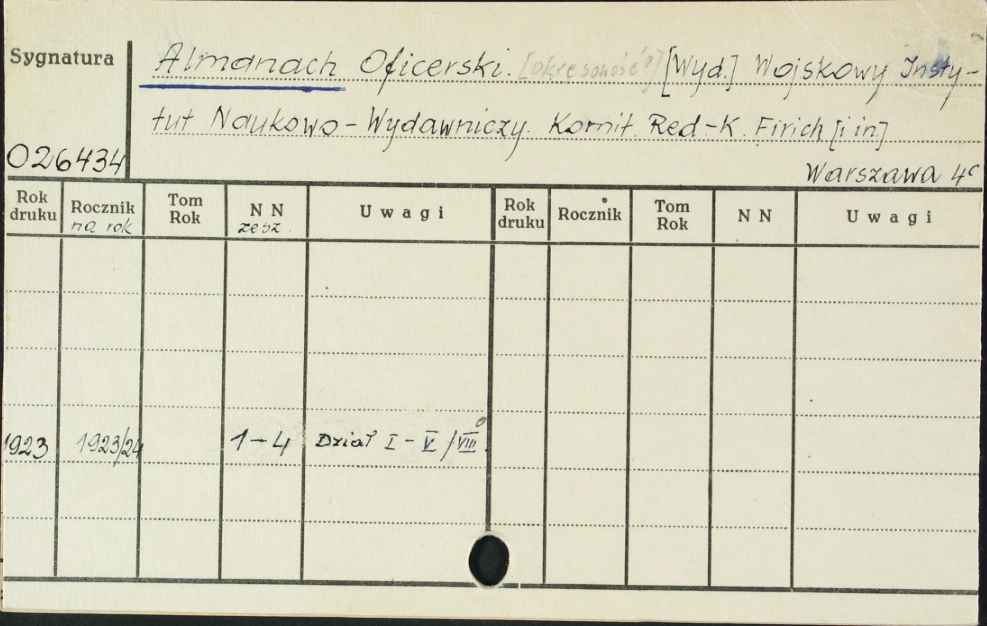 Sygnatura
Almanach Oficerski. [okresowość?] [Wyd.] Wojskowy Insty-
tut Naukowo-Wydawniczy. Komit. Red-K. Firich [i in]
026434
Warszawa 4°
Rok druku Rocznik na rok Tom Rok NN zesz. Uwagi Rok druku Rocznik Tom Rok NN Uwagi
1923 1923/24 1-4 Dział I-V/VIII